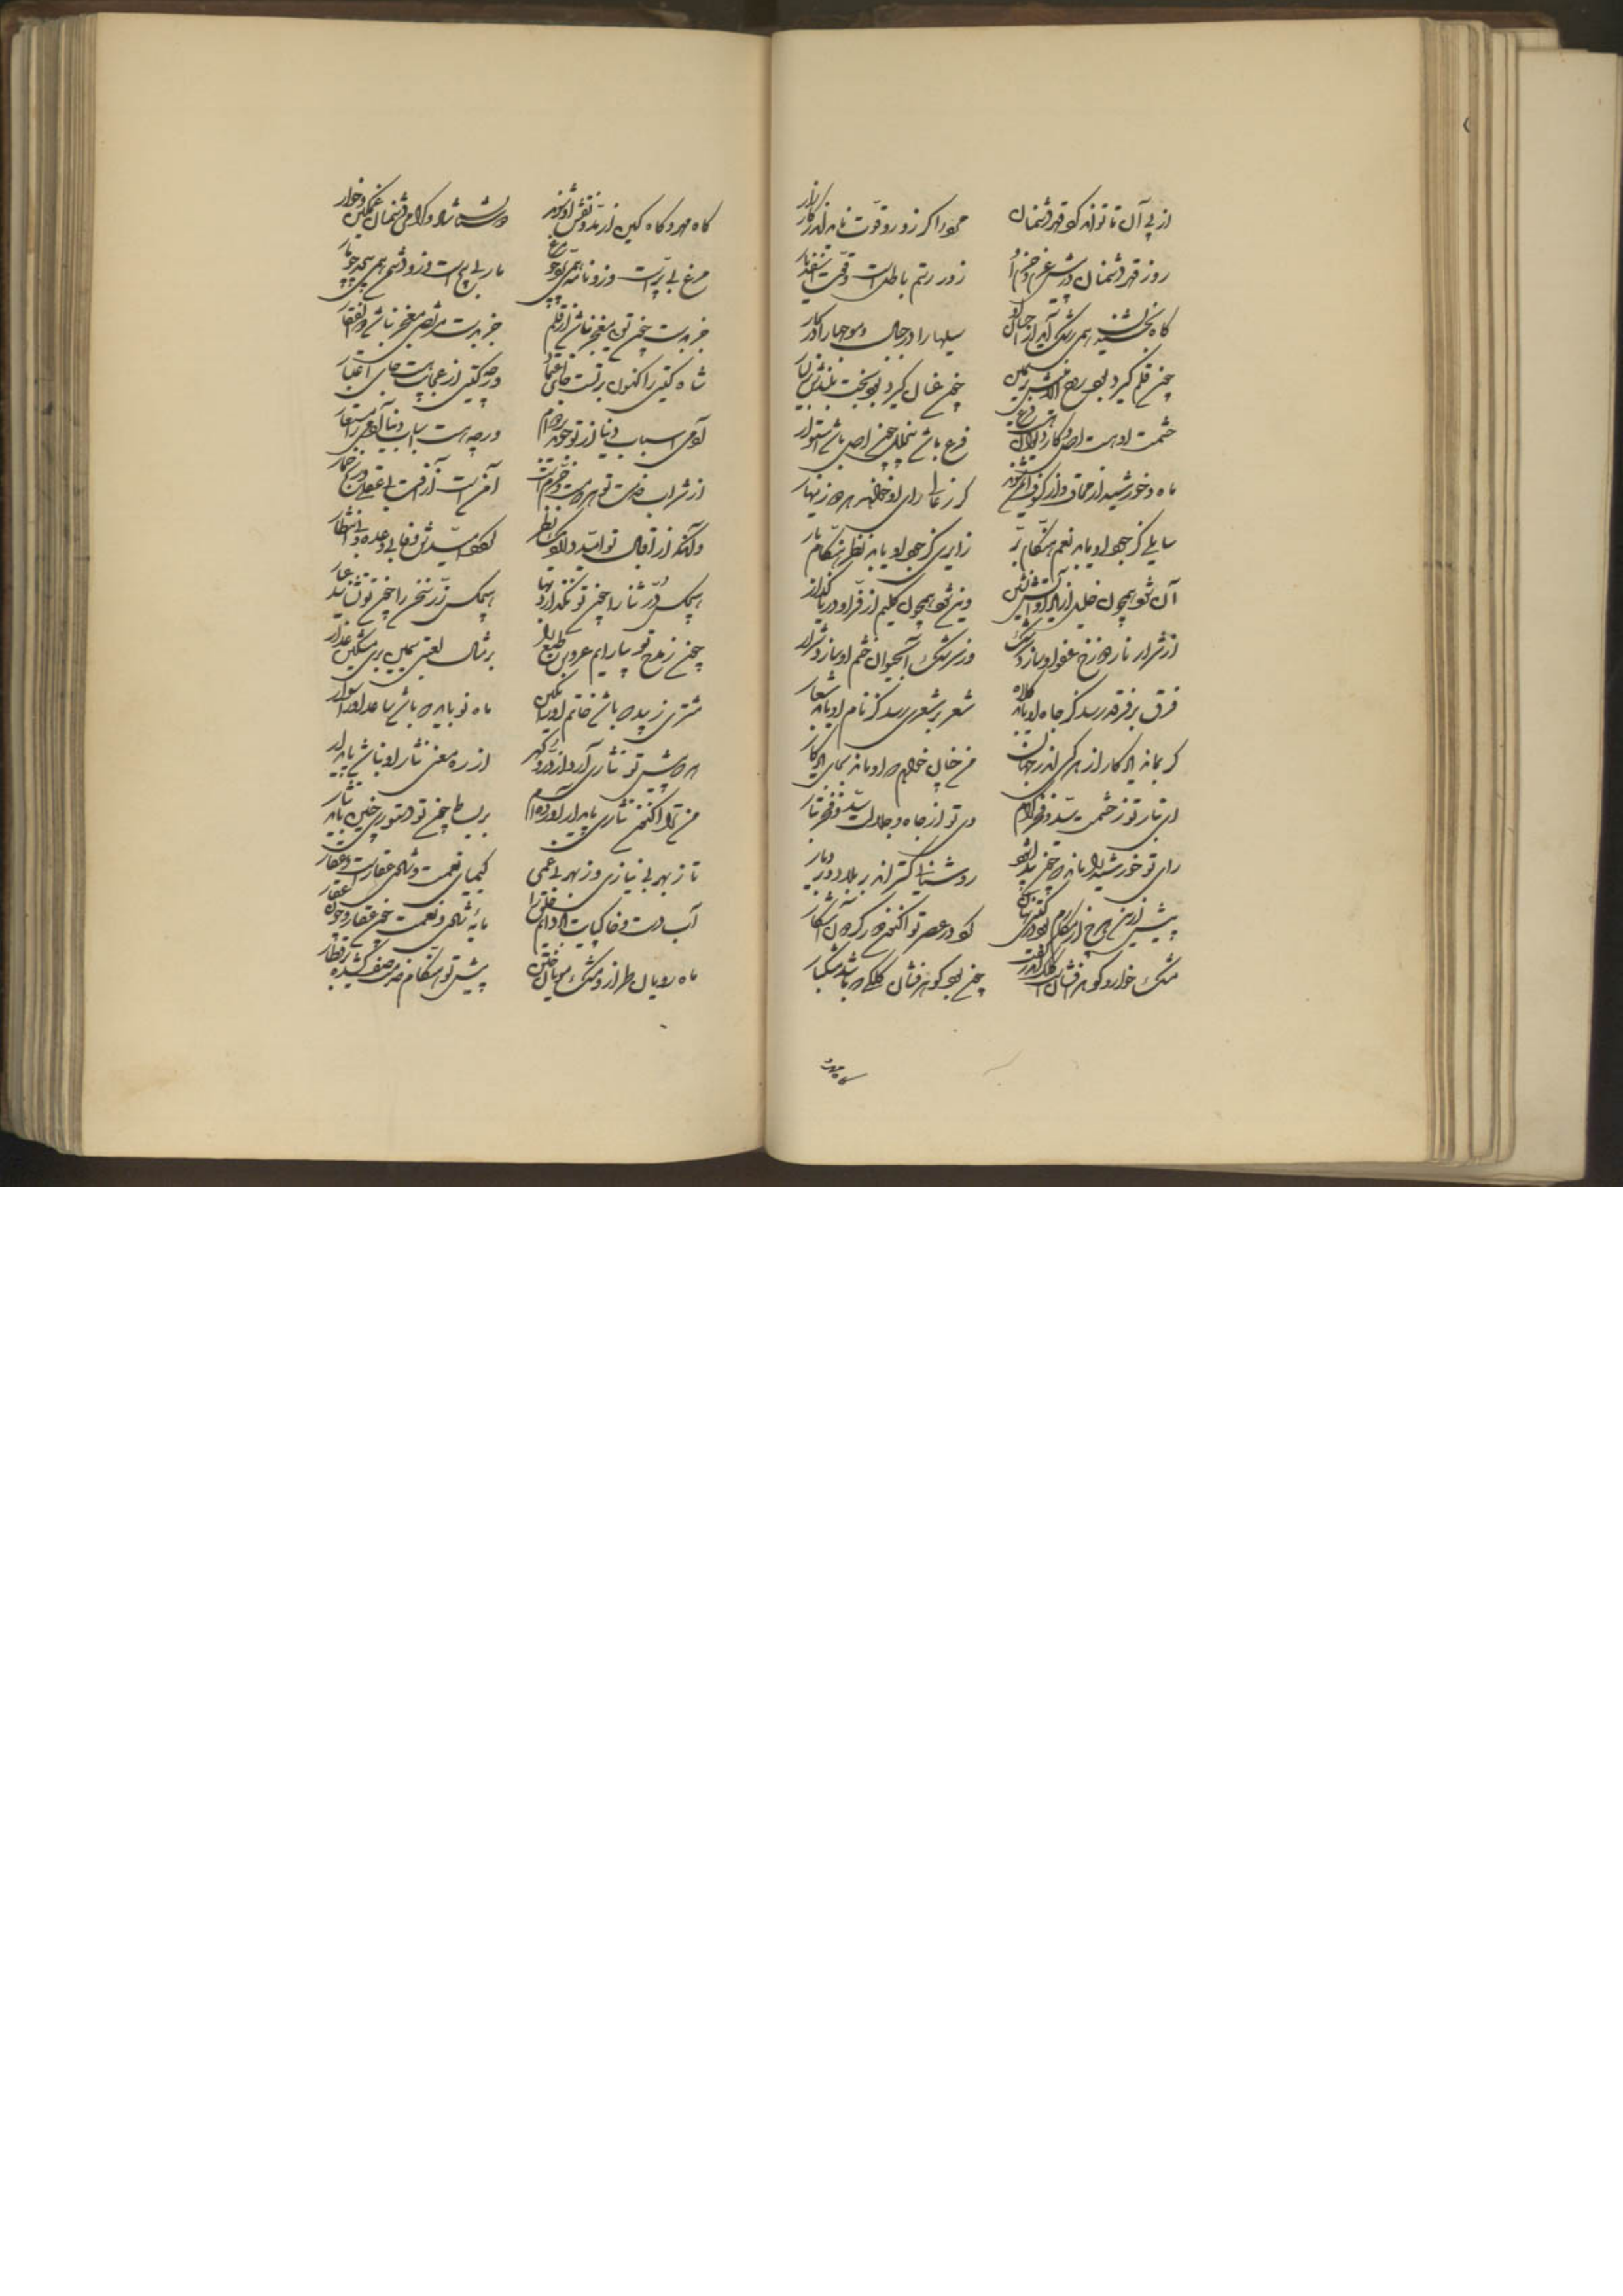 از پی آن تا تواند کرد قهر دشمنان
خود اگر زور و قوت نایدش اندر کارزار
روز قهر دشمنان در پیش عزم و حزم او
زور رستم باطلست و قوت اسفندیار
گاه بخشیدن همی رشک آید از
سیلها را در جبال و موجها را در بحار
چون قلم گیرد بود روح الامینش بر یمین
چون عنان گیرد بود بخت بلندش بر یسار
حشمت او هست اصل و کار
فرع باشد چون اصل باشد استوار
ماه و خورشید از محاق و از کسوف ایمن شوند
گر ز عالی رای او خواهند هر دو زینهار
سایلی کز جود او یابد نعم هنگام بر
زایری کز جود او یابد نظر هنگام بار
آن شود همچون خلیل ایزد از آتش
وین شود همچون کلیم ایزد از دریا گذار
از شرار نار دوزخ عفو او سازد سرشک
وز سرشک آب حیوان خشم او سازد شرار
فرق بر فرقد رسد گر جاه او یابد کلاه
شعر بر شعری رسد گر نام او یابد شعار
گر بماند یادگار از هر کس اندر جهان
من چنان خواهم که او ماند بجای یادگار
ای تبار تو ز حشمت سید و فخر کرام
وی تو از جاه و جلالت سید و فخر تبار
رای تو خورشید را ماند که چون پیدا شود
روشنایی گسترد اندر بلاد و در دیار
پیش ازین چرخ از مکارم گنجها بودی نهان
کرد در عصر تو اکنون هر گنجی آشکار
مشک خوارد گوهر افشان کلک تو
چون بود گوهرفشان کلکی که باشد مشکبار
گاه مهر
گاه مهر و گاه کین از بند و نقش او شوند
دوستان شاد و کرام و دشمنان غمگین و خوار
مرغ بی پرست وزو نامه همی پرد چو مرغ
مار بی پایست وزو دشمن همی پیچد چو مار
جز بدست چون تویی معجز نباشد از قلم
جز بدست مرتضی معجز نباشد ذوالفقار
شاه گیتی را کنون بر تست جای اعتماد
ورچه گیتی از عجایب هست جای اعتبار
آدمی اسباب دنیا از تو خواهد
ورچه هست اسباب دنیا آدمی را مستعار
از شراب خدمت تو هر که مست و خرم است
ایمن است از آفت بی عقلی و رنج خمار
وانکه از اقبال تو امید دارد یک نظر
گردد امیدش وفا بی وعده و بی انتظار
هیچکس در ثنا را چون تو نگذارد بها
هیچکس زر سخن را چون تو نشناسد عیار
چون ز مدح تو بیارایم عروس طبع را
بر مثال لعبتی سیمین بر و مشکین عذار
مشتری زیبد که باشد خاتم او را نگین
ماه نو باید که باشد ساعد او را سوار
هر که پیش تو نثاری آرد از در و گهر
از ره معنی نثار او نباشد پایدار
من ترا اکنون نثاری پایدار آورده ام
بر بساط چون تو دستوری چنین باید نثار
تا ز بهر بی نیازی وز بهر بی غمی
کیمیای نعمت و شادی عقارست و عقار
آب دست و خاک پایت باد دایم خلق را
مایه شادی و نعمت چون عقار و چون عقار
ماه رویان طراز و مشک مویان ختن
پیش تو هنگام خدمت صف کشیده بر قطار